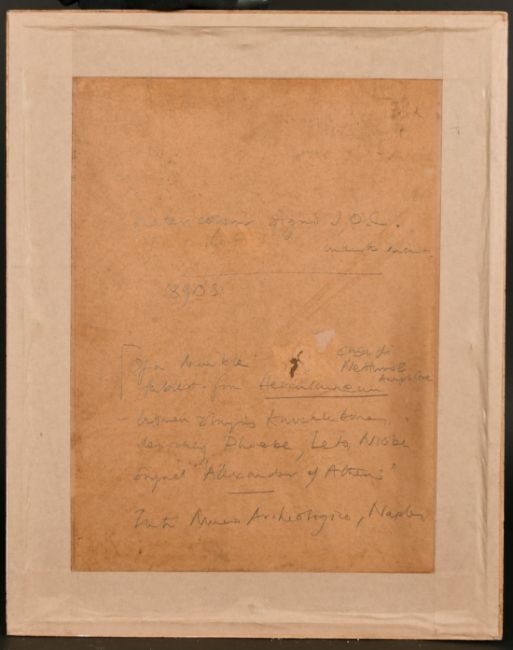 water colour signed J.O.C.
3903
of a marble
tablet from Herculaneum
Casa di
Neptune &
Women playing Knucklebones.
Phoebe, Leto, Niobe
signed "Alexander of Athens"
In the Museo Archeologico, Naples